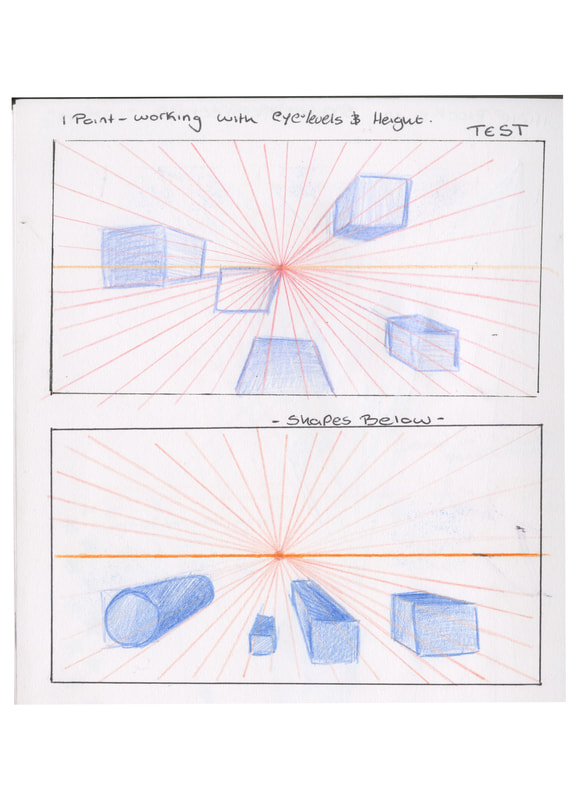 1 Point - working with eye-levels & Height.
TEST
- Shapes Below -